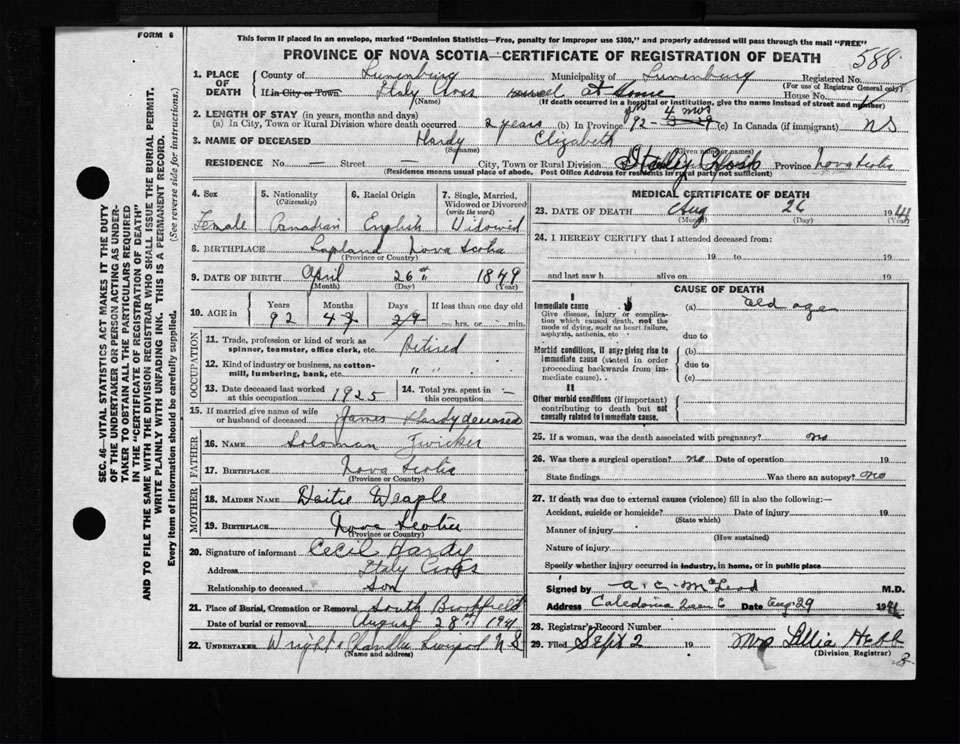 FORM 6
This form if placed in an envelope, marked "Dominion Statistics—Free, penalty for improper use $300," and properly addressed will pass through the mail "FREE"
PROVINCE OF NOVA SCOTIA—CERTIFICATE OF REGISTRATION OF DEATH 588
1. PLACE OF DEATH County of Lunenburg Municipality of Lunenburg Registered No.
(For use of Registrar General only)
If in City or Town Italy Cross at Home House No.
(Name) (If death occurred in a hospital or institution, give the name instead of street and number)
2. LENGTH OF STAY (in years, months and days)
(a) In City, Town or Rural Division where death occurred 2 years (b) In Province 92 yrs 4 mos (c) In Canada (if immigrant) NS
3. NAME OF DECEASED Hardy Elizabeth
(Surname) (Given name or names)
RESIDENCE No. — Street — City, Town or Rural Division Province Nova Scotia
(Residence means usual place of abode. Post Office Address for residents in rural parts not sufficient)
4. Sex Female
5. Nationality (Citizenship) Canadian
6. Racial Origin English
7. Single, Married, Widowed or Divorced (write the word) Widowed
8. BIRTHPLACE Lapland Nova Scotia
(Province or Country)
9. DATE OF BIRTH April 26th 1849
(Month) (Day) (Year)
10. AGE in Years 92 Months 4 Days If less than one day old — hrs. or — min.
OCCUPATION
11. Trade, profession or kind of work as spinner, teamster, office clerk, etc. Retired
12. Kind of industry or business, as cotton-mill, lumbering, bank, etc. " "
13. Date deceased last worked at this occupation 1925
14. Total yrs. spent in this occupation —
15. If married give name of wife or husband of deceased James Hardy deceased
FATHER
16. NAME Soloman Zwicker
17. BIRTHPLACE Nova Scotia
(Province or Country)
MOTHER
18. MAIDEN NAME
19. BIRTHPLACE Nova Scotia
(Province or Country)
20. Signature of informant Cecil Hardy
Address Italy Cross
Relationship to deceased Son
21. Place of Burial, Cremation or Removal South Brookfield
Date of burial or removal August 28th 1941
22. UNDERTAKER Wright & Chandler Liverpool N S
(Name and address)
MEDICAL CERTIFICATE OF DEATH
23. DATE OF DEATH Aug 26 1941
(Month) (Day) (Year)
24. I HEREBY CERTIFY that I attended deceased from:
19 to 19
and last saw h alive on 19
CAUSE OF DEATH
I
Immediate cause (a) old age
Give disease, injury or complication which caused death, not the mode of dying, such as heart failure, asphyxia, asthenia, etc.
due to
Morbid conditions, if any, giving rise to immediate cause (stated in order proceeding backwards from immediate cause).
(b)
due to
(c)
II
Other morbid conditions (if important) contributing to death but not causally related to immediate cause.
25. If a woman, was the death associated with pregnancy? no
26. Was there a surgical operation? no Date of operation 19
State findings Was there an autopsy? no
27. If death was due to external causes (violence) fill in also the following:—
Accident, suicide or homicide? Date of injury 19
(State which)
Manner of injury
(How sustained)
Nature of injury
Specify whether injury occurred in industry, in home, or in public place
Signed by A. C. McLeod M.D.
Address Caledonia Queens Co Date Aug 29 1941
28. Registrar's Record Number
29. Filed Sept 2 19 Mrs Lillia Hebb
(Division Registrar)
SEC. 46—VITAL STATISTICS ACT MAKES IT THE DUTY OF THE UNDERTAKER OR PERSON ACTING AS UNDERTAKER TO OBTAIN ALL THE PARTICULARS REQUIRED IN THE "CERTIFICATE OF REGISTRATION OF DEATH"
AND TO FILE THE SAME WITH THE DIVISION REGISTRAR WHO SHALL ISSUE THE BURIAL PERMIT.
WRITE PLAINLY WITH UNFADING INK. THIS IS A PERMANENT RECORD.
Every item of information should be carefully supplied. (See reverse side for instructions.)